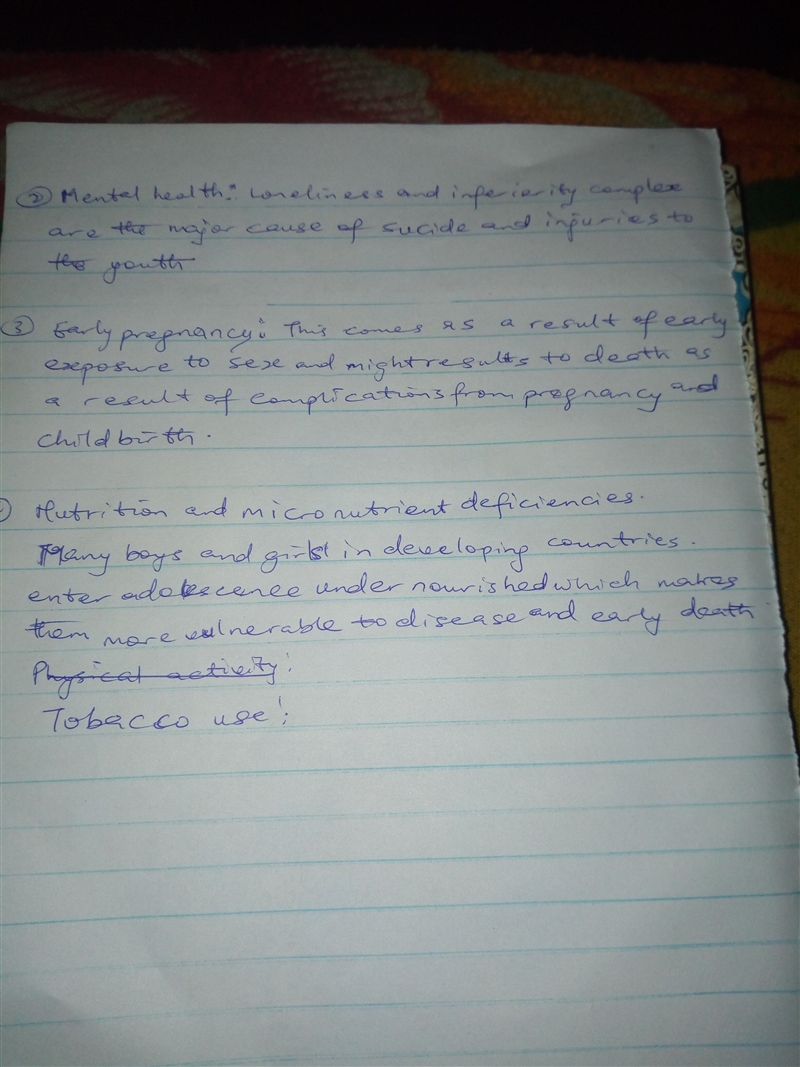 ② Mental health: Loneliness and inferiority complex
are the major cause of sucide and injuries to
the youth
③ Early pregnancy: This comes as a result of early
exposure to sex and might results to death as
a result of complications from pregnancy and
child birth.
Nutrition and micronutrient deficiencies.
Many boys and girls in developing countries.
enter adolescence under nourished which makes
them more vulnerable to disease and early death
Physical activity:
Tobacco use: